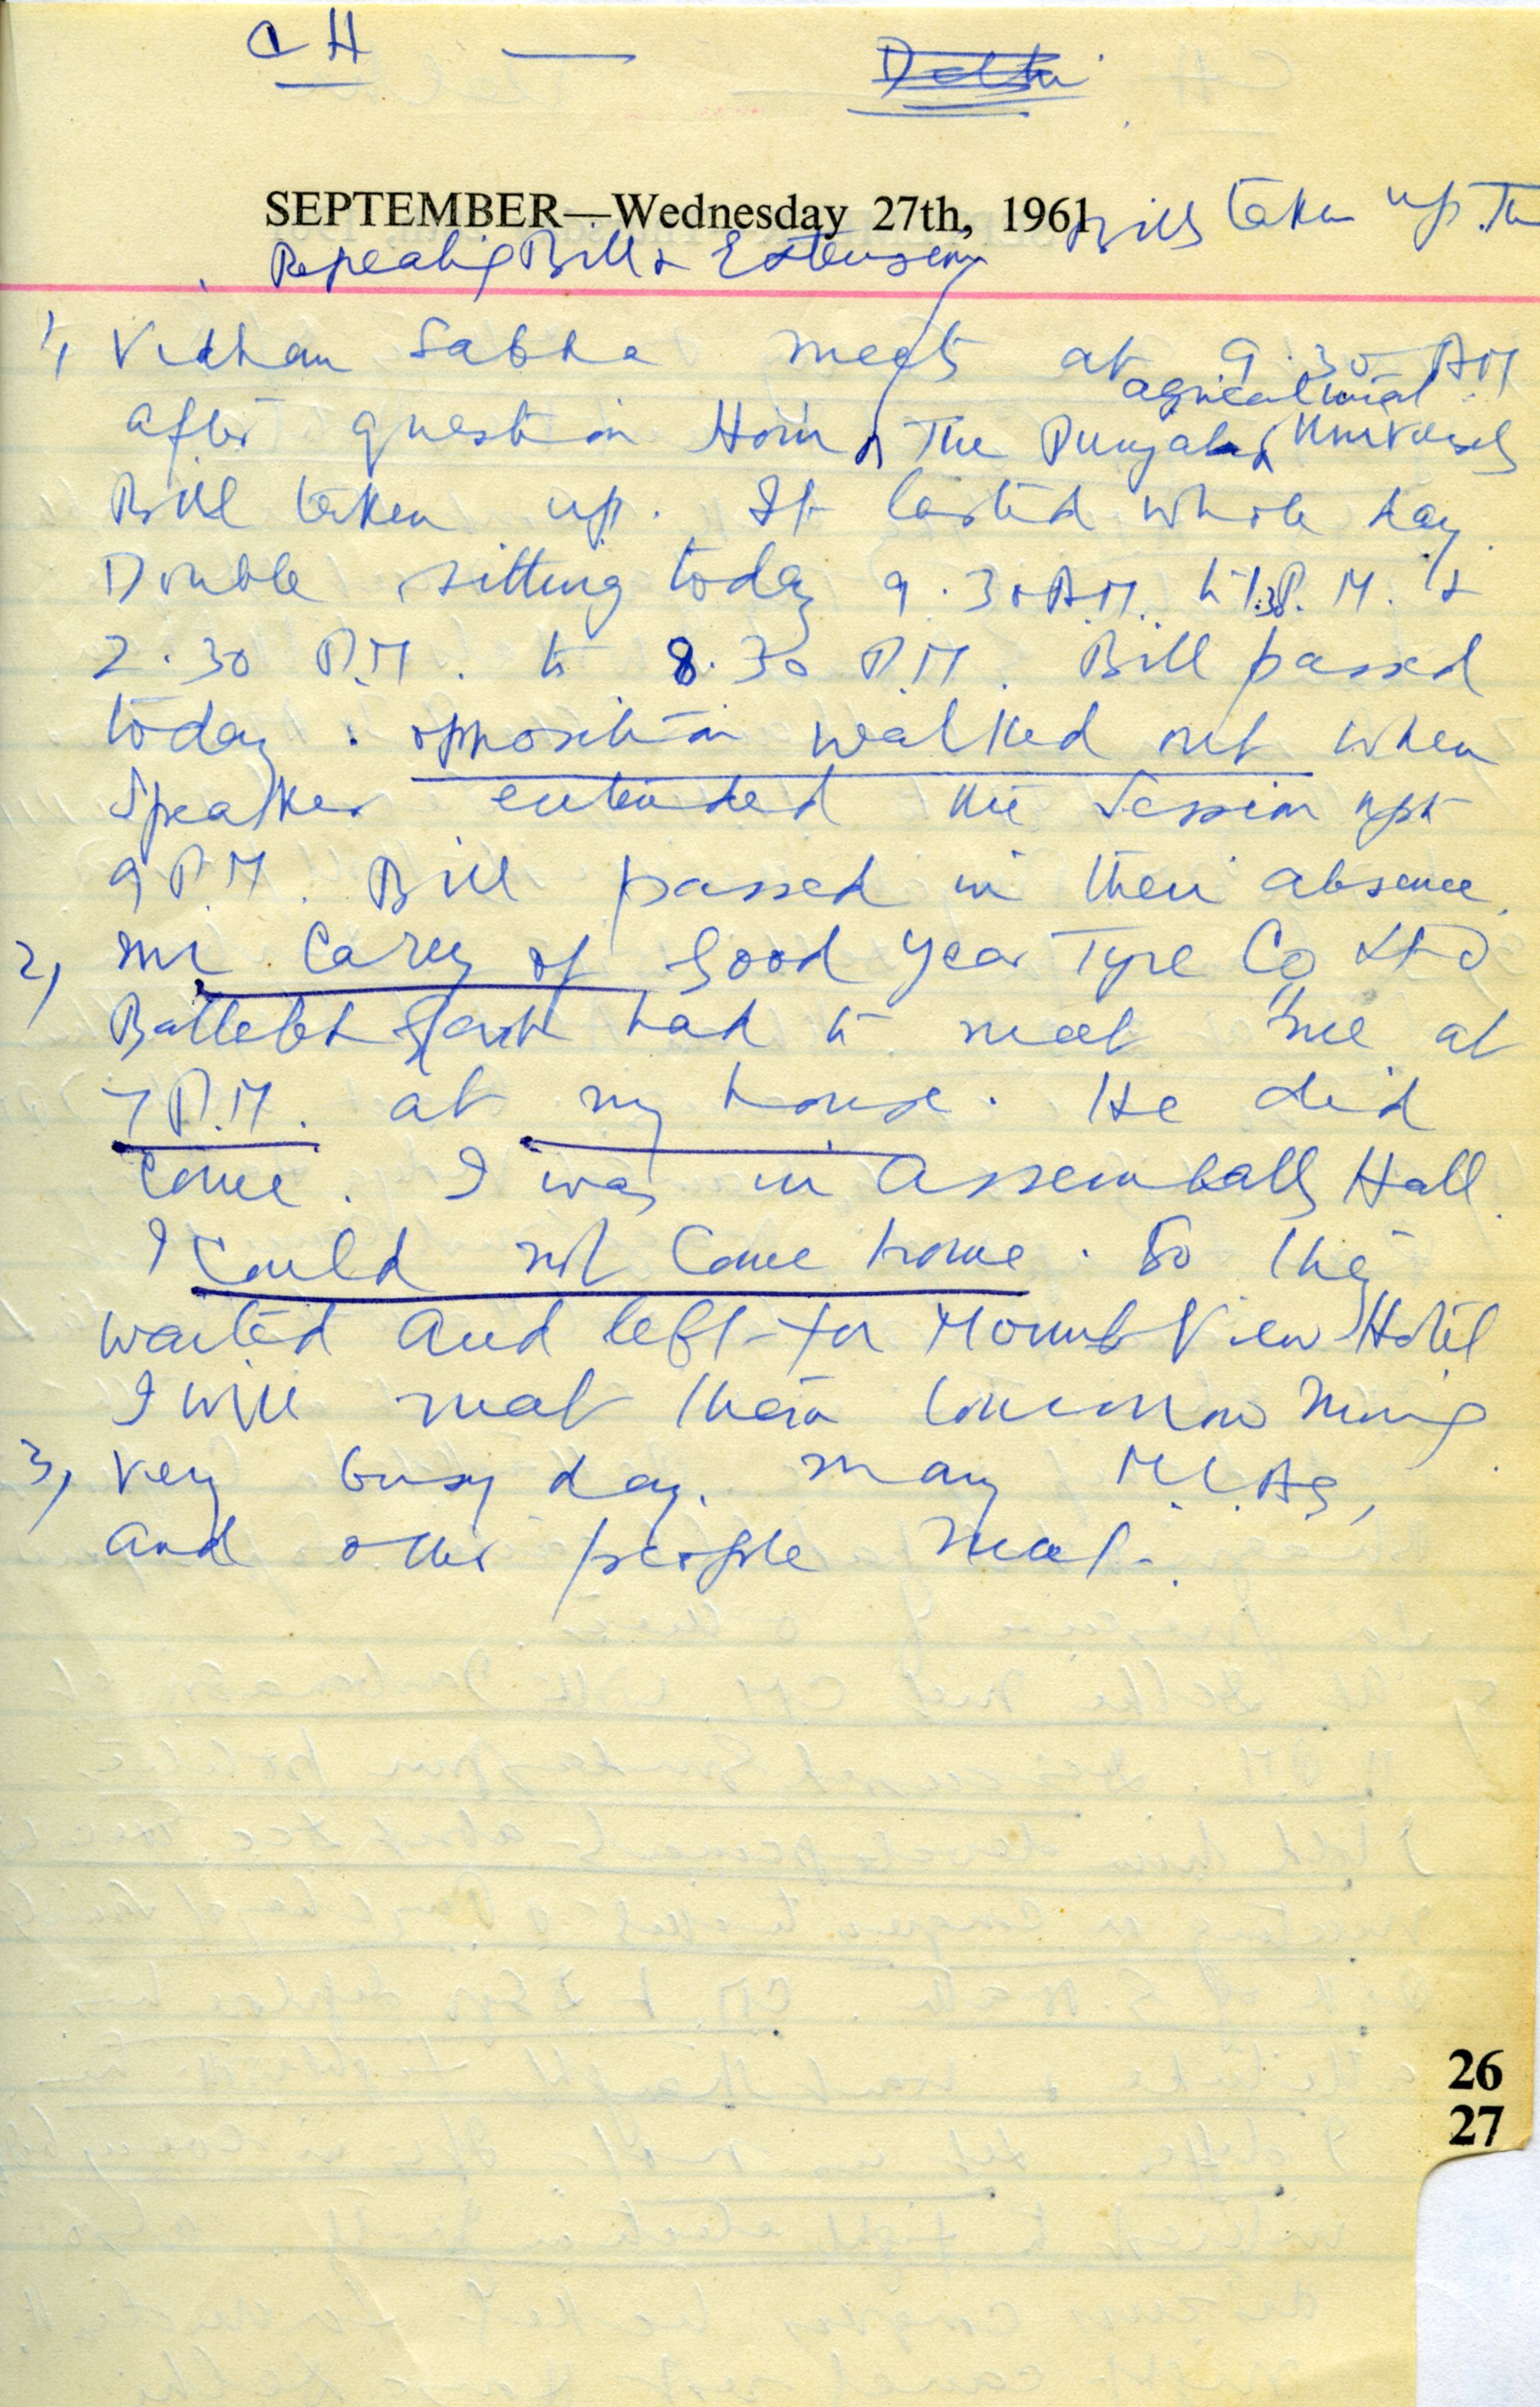 CH — Delhi
SEPTEMBER—Wednesday 27th, 1961
Repealing Bill & Extension Bills taken up. Then
1, Vidhan Sabha meets at 9.30 AM
after question Hour, The Punjab agricultural University
Bill taken up. It lasted whole day.
Double sitting today 9.30 AM. to 1.30 P.M. &
2.30 P.M. to 8.30 P.M. Bill passed
today. opposition walked out when
Speaker extended the Session upto
9 P.M. Bill passed in their absence.
2, Mr Carey of Good Year Tyre Co Ltd
had to meet me at
7 P.M. at my house. He did
come. I was in Assembally Hall.
I could not come home. So they
waited and left for Mount View Hotel
I will meet them tomorrow
3, Very busy day. Many M.L.As,
and other people met.
26
27